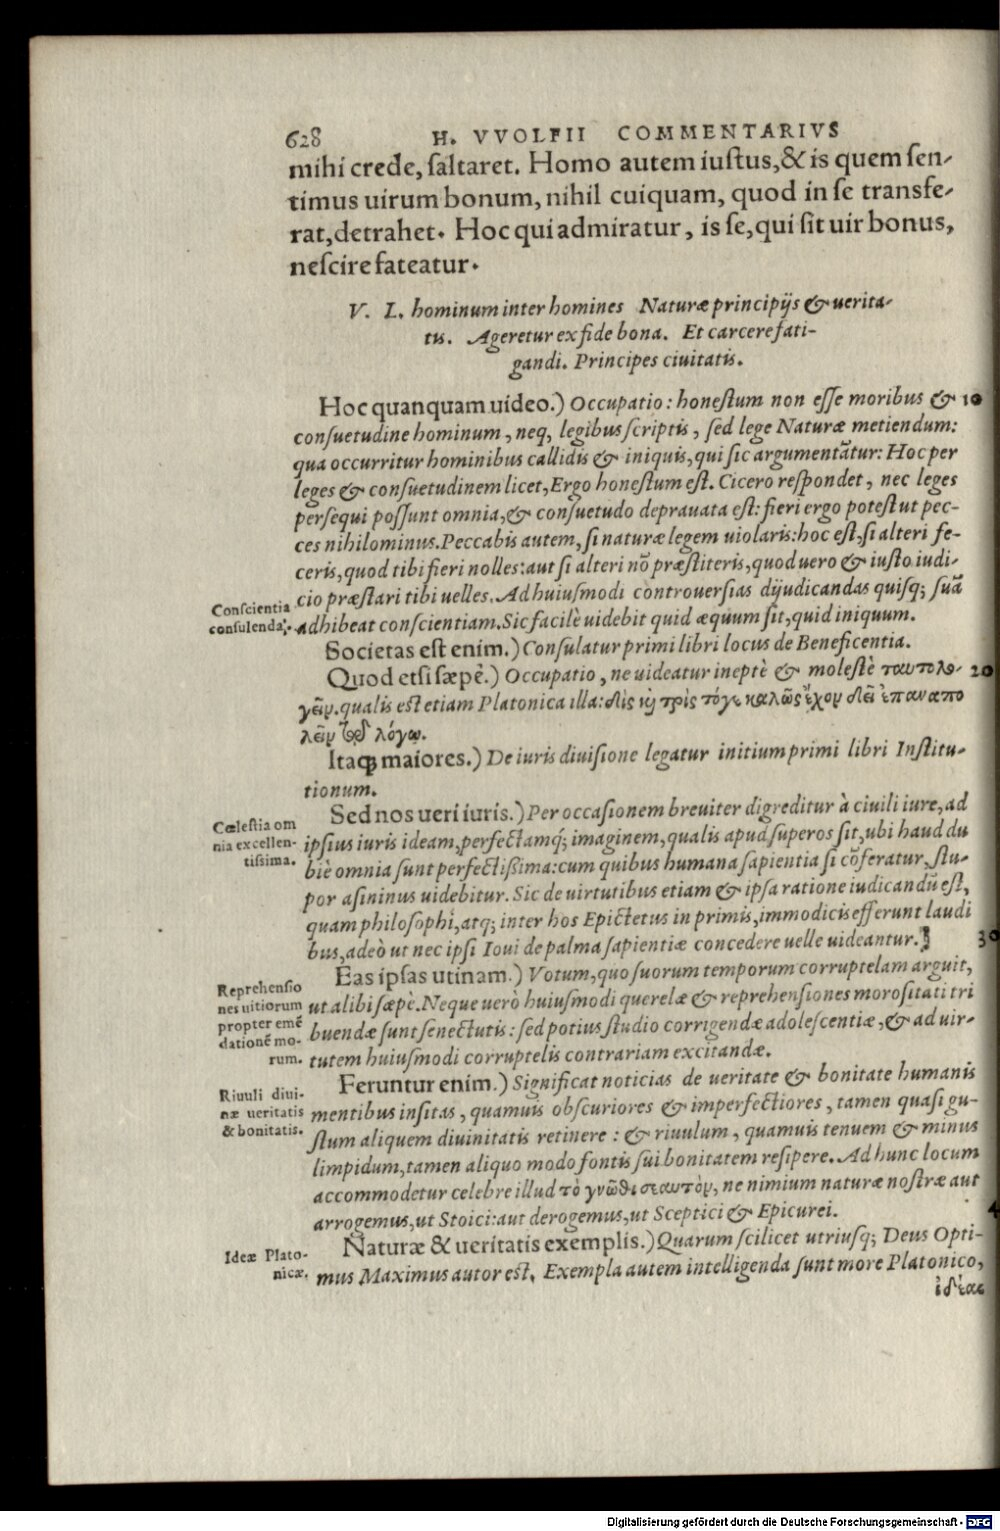 628 H. VVOLFII COMMENTARIVS
mihi crede, saltaret. Homo autem iustus, & is quem sen-
timus uirum bonum, nihil cuiquam, quod in se transfe-
rat, detrahet. Hoc qui admiratur, is se, qui sit uir bonus,
nescire fateatur.
V. L. hominum inter homines Naturæ principijs & uerita-
tis. Ageretur ex fide bona. Et carcere fati-
gandi. Principes ciuitatis.
Hoc quanquam uideo.) Occupatio: honestum non esse moribus & 10
consuetudine hominum, neq, legibus scriptis, sed lege Naturæ metiendum:
qua occurritur hominibus callidis & iniquis, qui sic argumentãtur: Hoc per
leges & consuetudinem licet, Ergo honestum est. Cicero respondet, nec leges
persequi possunt omnia, & consuetudo deprauata est: fieri ergo potest ut pec-
ces nihilominus. Peccabis autem, si naturæ legem uiolaris: hoc est, si alteri fe-
ceris, quod tibi fieri nolles: aut si alteri nõ præstiteris, quod uero & iusto iudi-
cio præstari tibi uelles. Ad huiusmodi controuersias dijudicandas quisq; suã
Conscientia
consulenda.
adhibeat conscientiam. Sic facilè uidebit quid æquum sit, quid iniquum.
Societas est enim.) Consulatur primi libri locus de Beneficentia.
Quod etsi sæpè.) Occupatio, ne uideatur ineptè & molestè ταυτολο- 20
γεῖν. qualis est etiam Platonica illa: δὶς καὶ τρὶς τόγε καλῶς ἔχον δεῖ ἐπαναπο
λεῖν τῷ λόγῳ.
Itaq; maiores.) De iuris diuisione legatur initium primi libri Institu-
tionum.
Sed nos ueri iuris.) Per occasionem breuiter digreditur à ciuili iure, ad
Cœlestia om
nia excellen-
tissima.
ipsius iuris ideam, perfectamq́; imaginem, qualis apud superos sit, ubi haud du
biè omnia sunt perfectissima: cum quibus humana sapientia si cõferatur, stu-
por asininus uidebitur. Sic de uirtutibus etiam & ipsa ratione iudicandũ est,
quam philosophi, atq; inter hos Epictetus in primis, immodicis efferunt laudi
bus, adeò ut nec ipsi Ioui de palma sapientiæ concedere uelle uideantur. 30
Eas ipsas utinam.) Votum, quo suorum temporum corruptelam arguit,
Reprehensio
nes uitiorum
propter emẽ
dationẽ mo-
rum.
ut alibi sæpè. Neque uerò huiusmodi querelæ & reprehensiones morositati tri
buendæ sunt senectutis: sed potius studio corrigendæ adolescentiæ, & ad uir-
tutem huiusmodi corruptelis contrariam excitandæ.
Feruntur enim.) Significat noticias de ueritate & bonitate humanis
Riuuli diui-
næ ueritatis
& bonitatis.
mentibus insitas, quamuis obscuriores & imperfectiores, tamen quasi gu-
stum aliquem diuinitatis retinere: & riuulum, quamuis tenuem & minus
limpidum, tamen aliquo modo fontis sui bonitatem resipere. Ad hunc locum
accommodetur celebre illud τὸ γνῶθι σεαυτὸν, ne nimium naturæ nostræ aut
arrogemus, ut Stoici: aut derogemus, ut Sceptici & Epicurei. 4
Naturæ & ueritatis exemplis.) Quarum scilicet utriusq; Deus Opti-
Ideæ Plato-
nicæ.
mus Maximus autor est. Exempla autem intelligenda sunt more Platonico,
ἰδέας
Digitalisierung gefördert durch die Deutsche Forschungsgemeinschaft - DFG